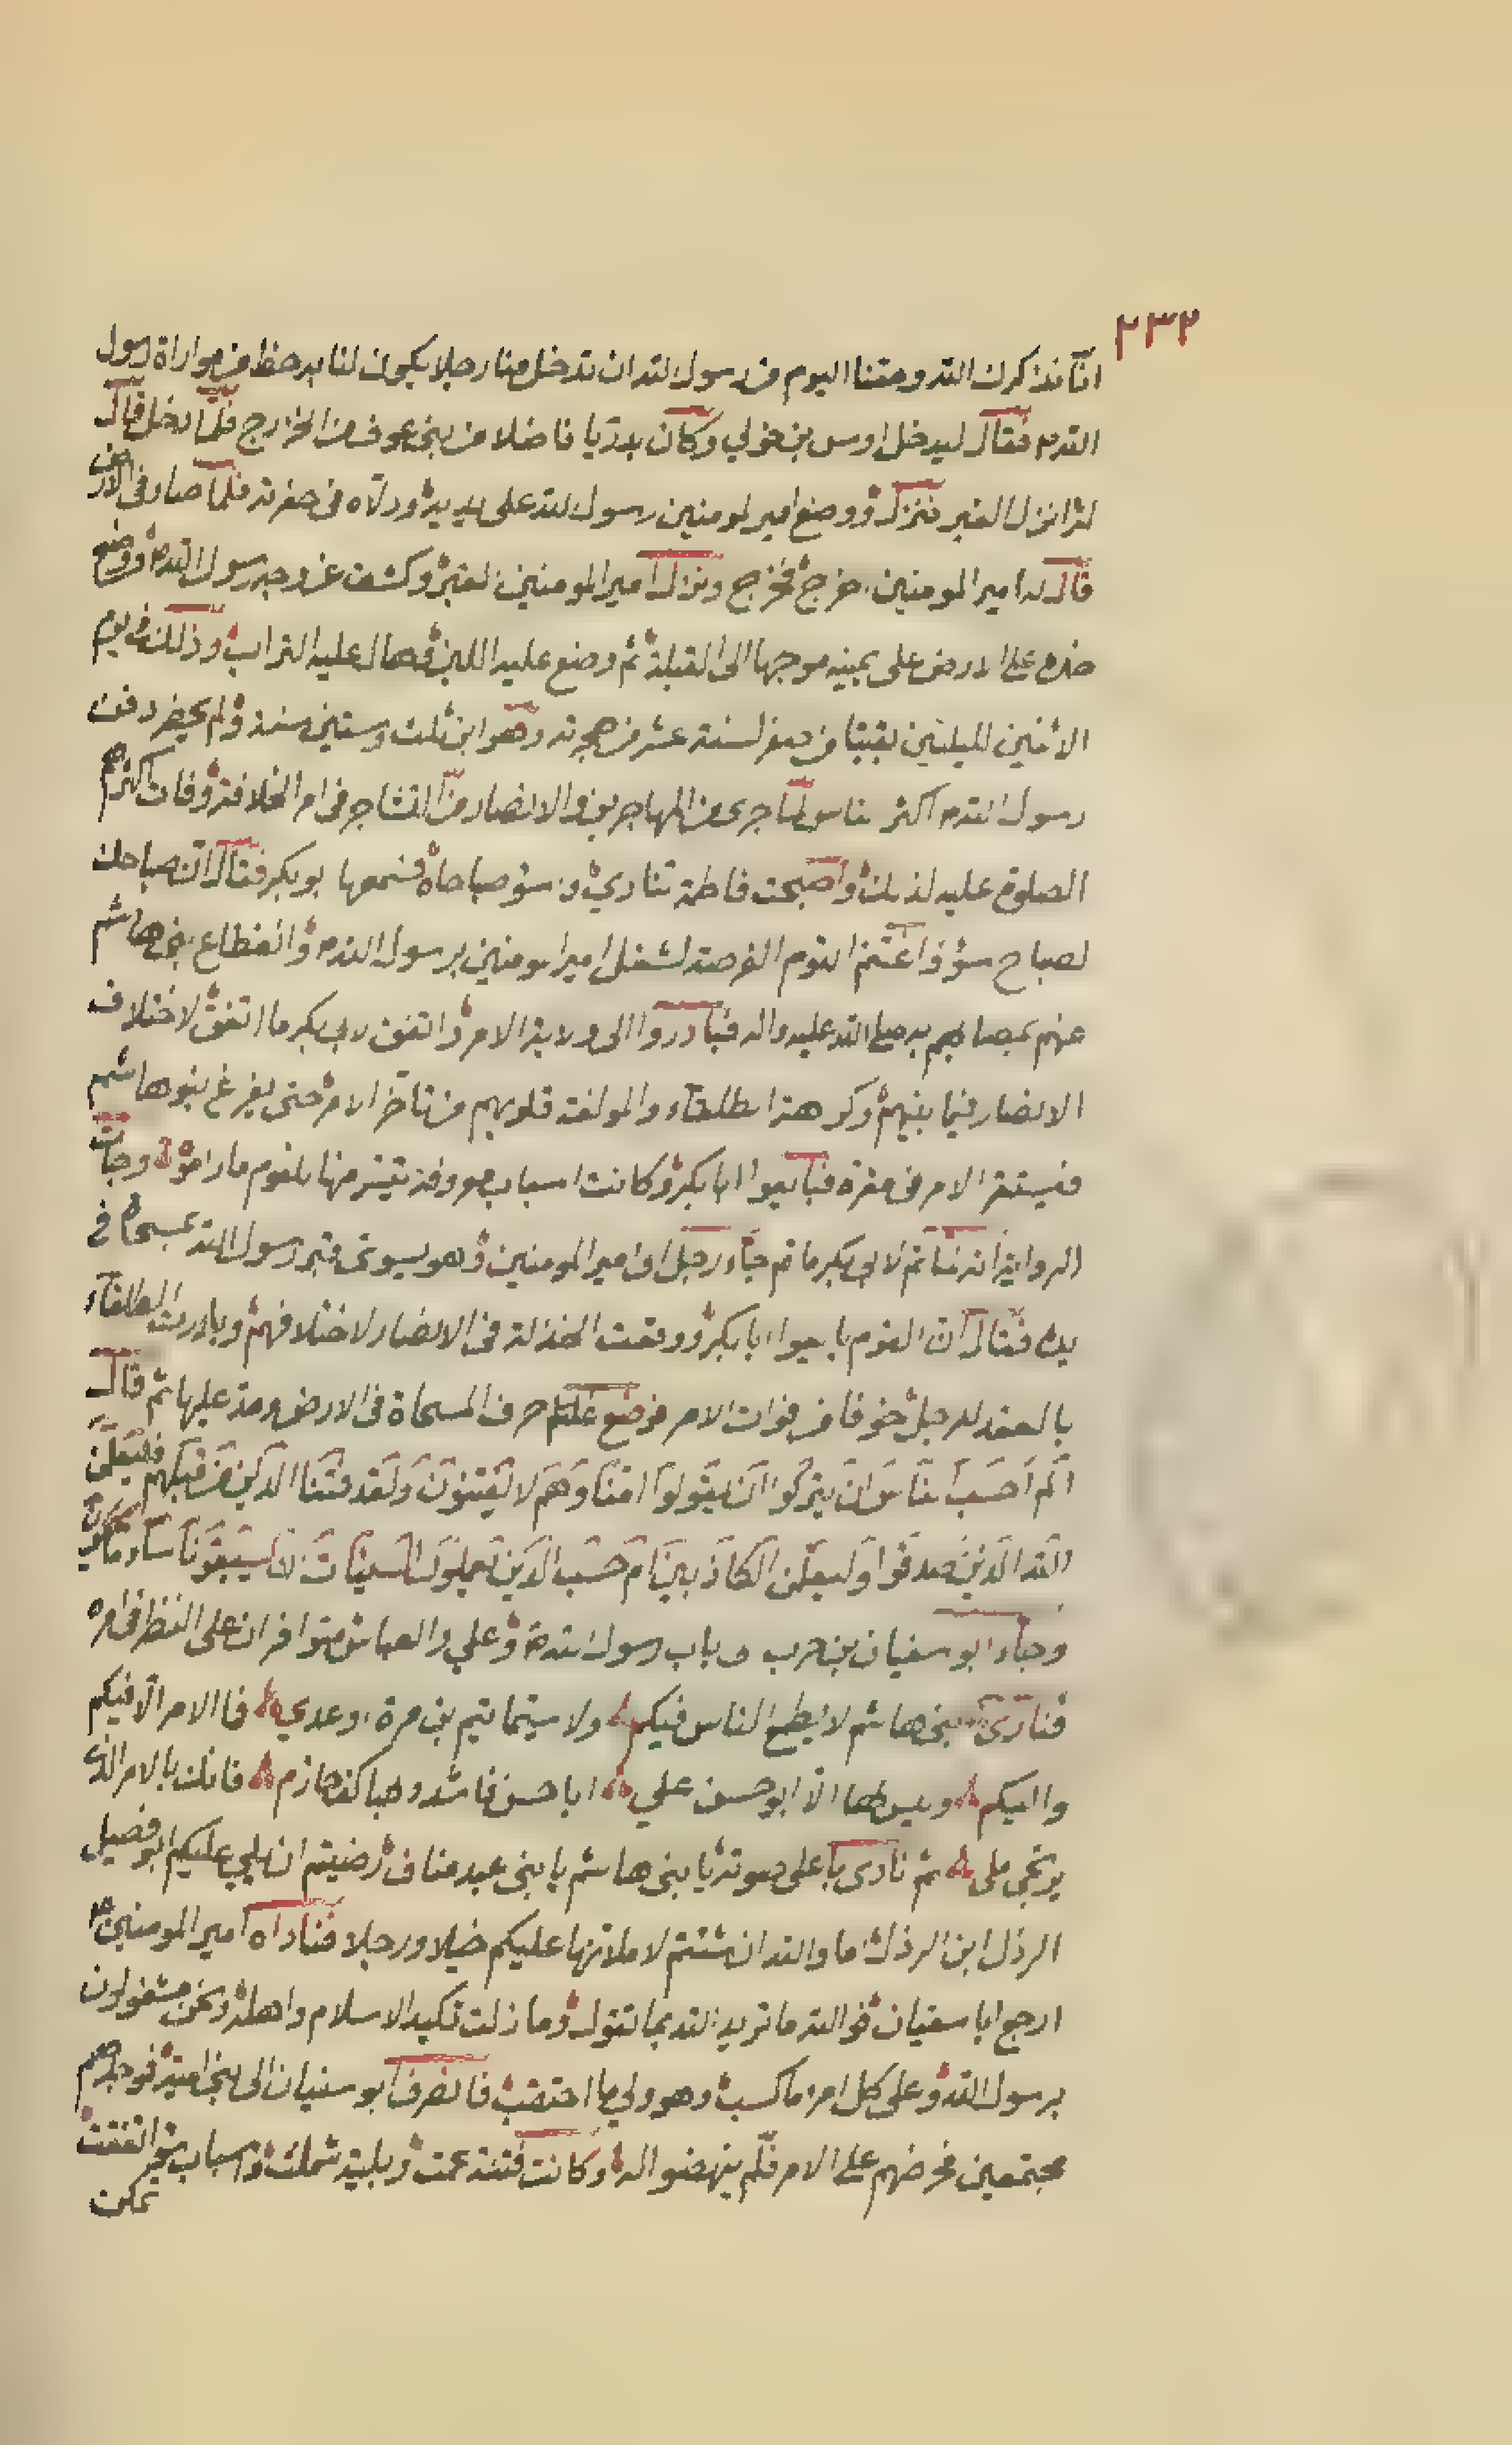 ٢٣٢
انا نذكرك الله وحقنا اليوم من رسول الله ان تدخل منا رجلا يكون لنا به حظ من مواراة رسول
الله م فقال ليدخل اوس بن خولي وكان بدريا فاضلا من بني عوف من الخزرج فلما دخل قال
له انزل القبر فنزل ووضع امير المومنين رسول الله على يديه ودلاه في حفرته فلما صار في الارض
قال له امير المومنين اخرج فخرج ونزل امير المومنين القبر وكشف عن وجه رسول الله ووضع
خده على الارض على يمينه موجها الى القبلة ثم وضع عليه اللبن وهال عليه التراب وذلك في يوم
الاثنين لليلتين بقيتا من صفر لسنة عشر من هجرته وهو ابن ثلث وستين سنة ولم يحضر دفن
رسول الله م اكثر الناس لما جرى من المهاجرين والانصار من التشاجر في امر الخلافة وفات اكثرهم
الصلوة عليه لذلك واصبحت فاطمة تنادي وا سؤ صباحاه فسمعها ابو بكر فقال ان صباحك
لصباح سؤ واغتنم القوم الفرصة لشغل امير المومنين برسول الله م وانقطاع بني هاشم
عنهم بمصابهم به صلى الله عليه واله فبادروا الى ولاية الامر واتفق لابي بكر ما اتفق لاختلاف
الانصار فيما بينهم وكرهة الطلقاء والمولفة قلوبهم من تاخر الامر حتى يفرغ بنو هاشم
فيستقر الامر في مقره فبايعوا ابا بكر وكانت اسباب معروفة تيسر منها للقوم ما راموه وجاءت
الرواية انه لما تم لابي بكر ما تم جاء رجل الى امير المومنين وهو يسوي قبر رسول الله بمسحاة في
يده فقال ان القوم بايعوا ابا بكر ووقعت الخذلة في الانصار لاختلافهم وبادرت الطلقاء
بالعقد للرجل خوفا من فوات الامر فوضع طرف المسحاة في الارض ويده عليها ثم قال
الم احسب الناس ان يتركوا ان يقولوا امنا وهم لا يفتنون ولقد فتنا الذين من قبلهم فليعلمن
الله الذين صدقوا وليعلمن الكاذبين ام حسب الذين يعملون السيئات ان يسبقونا ساء ما يحكمون
وجاء ابو سفيان بن حرب الى باب رسول الله م وعلي والعباس متوافران على النظر في امره
فنادى بني هاشم لا يطمع الناس فيكم ولا سيما تيم بن مرة او عدي فا الامر الا فيكم
واليكم وليس لها الا ابو حسن علي ابا حسن فاشدد بها كف حازم فانك بالامر الذي
يرتجي ملي ثم نادى باعلى صوته يا بني هاشم يا بني عبد مناف رضيتم ان يلي عليكم ابو فصيل
الرذل ابن الرذل اما والله ان شئتم لاملانها عليكم خيلا ورجلا فناداه امير المومنين
ارجع ابا سفيان فوالله ما تريد الله بما تقول وما زلت تكيد الاسلام واهله ونحن مشغولون
برسول الله وعلى كل امرء ما كسب وهو ولي ما احتقب فانصرف ابو سفيان الى بني امية فوجدهم
مجتمعين فحرضهم على الامر فلم ينهضوا اله وكانت فتنة عمت وبلية شملت واسباب سؤ اتفقت
تمكن